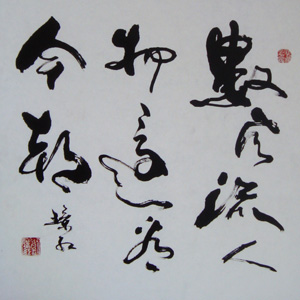 數風流人
物還看
今朝